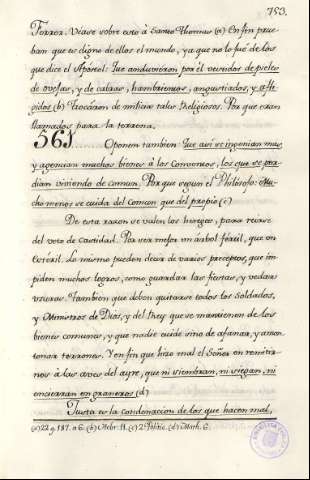 753.
Terror. Vease sobre esto à Santo Thomas (a) En fin prue-
ban que es digno de ellos el mundo, ya que no lo fué de los
que dice el Apóstol: Que anduvieron por él vestidos de pieles
de ovejas, y de cabras, hambrientos, angustiados, y afli-
gidos (b) Trocáron de milicia tales Religiosos. Por que eran
llamados para la terrena.
563. Oponen tambien: Que así se ingenian mas,
y agencian muchos bienes à los Conventos, los que se pu-
dian viviendo de comun. Por que segun el Philosofo: Mu-
cho menos se cuida del comun que del propio (c)
De esta razon se valen los hereges, para reirse
del voto de castidad. Por ser mejor un árbol fértil, que un
estéril. Lo mismo pueden decir de varios preceptos, que im-
piden muchos logros, como guardar las fiestas, y vedar
usuras. Tambien que deben quitarse todos los Soldados,
y Ministros de Dios, y del Rey que se mantienen de los
bienes comunes, y que nadie cuide sino de afanar, y amon-
tonar terrones. Y en fin que hizo mal el Señor en remitir-
nos à las aves del ayre, que ni siembran, ni siegan, ni
encierran en graneros (d)
Justa es la condenacion de los que hacen mal,
(a) 22 q. 187. a 6. (b) Hebr. 11. (c) 2 Politic. (d) Math. 6.